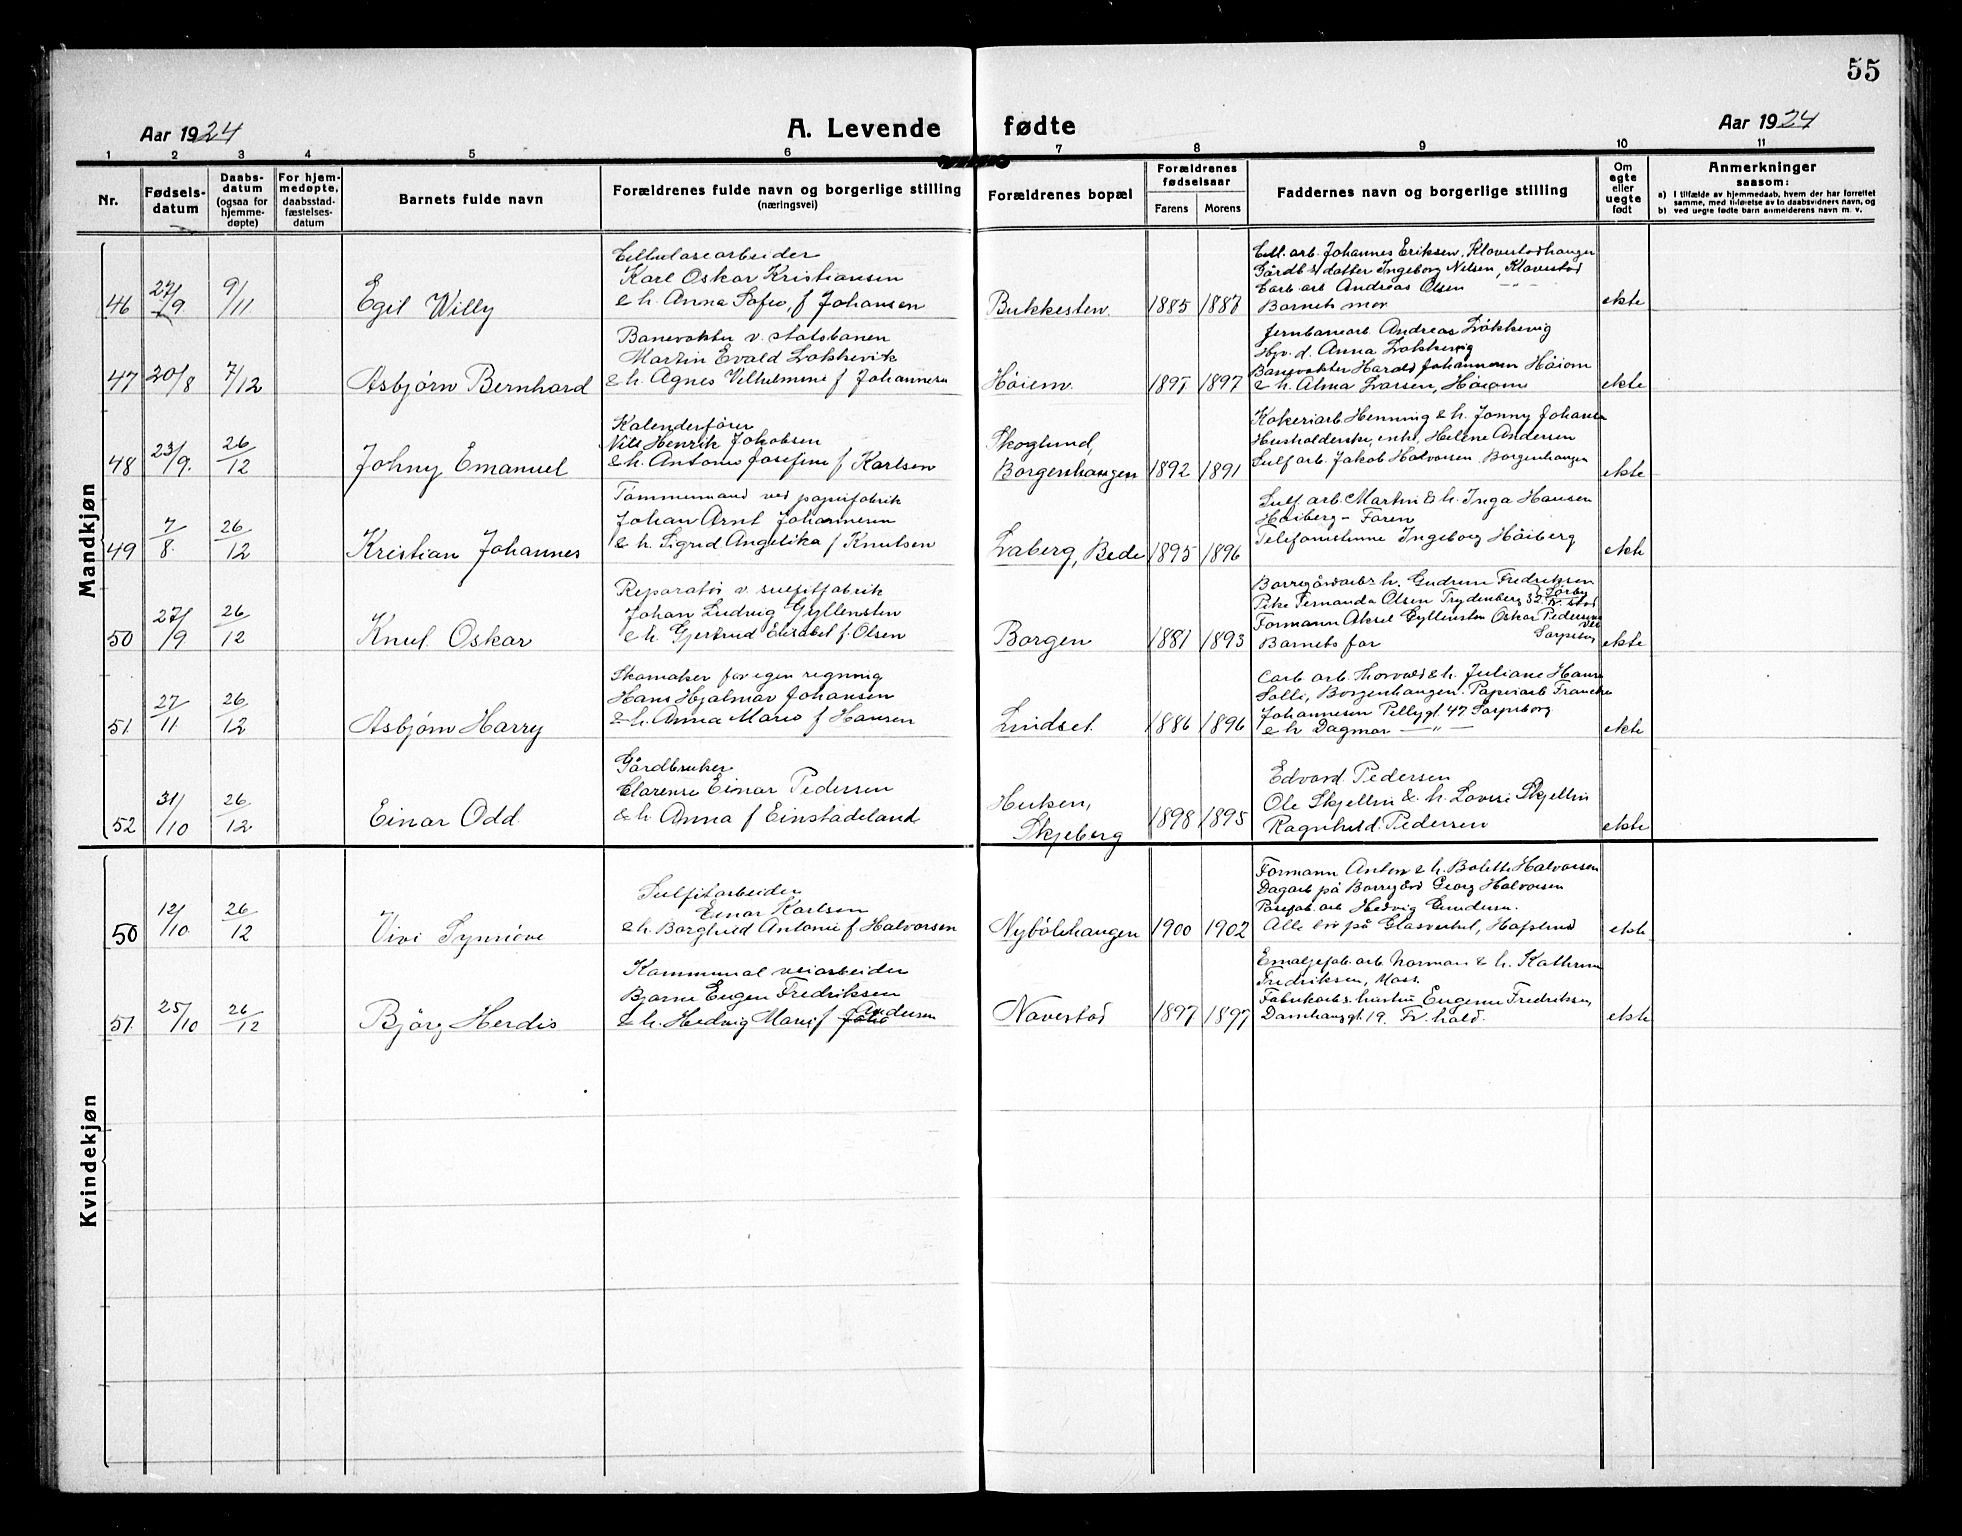 55
Aar 1924
A. Levende fødte
Aar 1924
1 2 3 4 5 6 7 8 9 10 11
Nr.
Fødselsdatum
Daabsdatum (ogsaa for hjemmedøpte)
For hjemmedøpte, daabsstadfæstelsesdatum
Barnets fulde navn
Forældrenes fulde navn og borgerlige stilling (næringsvei)
Forældrenes bopæl
Forældrenes fødselsaar
Farens
Morens
Faddernes navn og borgerlige stilling
Om egte eller uegte født
Anmerkninger saasom:
a) I tilfælde av hjemmedaab, hvem der har forrettet samme, med tilføielse av to daabsvidners navn, og
b) ved uegte fødte barn anmelderens navn m. v.
Mandkjøn
46 27/9 9/11 Egil Willy
Cellulosearbeider
Karl Oskar Kristiansen
& h. Anna Sofie f Johansen
Bukkesten 1885
Cell. arb. Johannes Eriksen, Klavestadhaugen
Gårdb s datter Ingeborg Nilsen, Klavestad
Carb. arb Andreas Olsen — " —
Barnets mor
ekte
47 20/8 7/12 Asbjørn Bernhard
Banevokter v. statsbanen
Martin Evald Løkkevik
& h. Agnes Vilhelmine f Johannesen
Høiem 1897
Jernbanearb Andreas Løkkevig
Anna Løkkevig
Banevokter Harald Johannesen Høiom
& h. Alma Larsen, Høiom
ekte
48 23/9. 26/12 Johny Emanuel
Kalenderfører
Nils Henrik Jakobsen
& h. Antonie Josefine f Karlsen
Skoglund, Borgenhaugen 1892 1891
Kokeriarb Henning & h. Jonny Johansen
Husholderske, enke, Helene Andersen
Sulf arb. Jakob Halvorsen Borgenhaugen
ekte
49 7/8. 26/12 Kristian Johannes
Tømmermand ved papirfabrik
Johan Arnt Johannesen
& h. Sigrid Angelika f Knutsen
Laberg, Bede 1895 1896
Sulf arb. Martin & h. Inga Hansen
Høiberg – Faren
Telefonistinne Ingeborg Høiberg
ekte
50 27/9 26/12 Knut Oskar
Reparatør v. sulfitfabrik
Johan Ludvig Gyllensten
& h. Gjertrud Elisabet f. Olsen
Borgen 1881 1893
Borregårdarb & h. Gudrun Fredriksen
Pike Fernanda Olsen Trydenberg 32
Formann Aksel Gyllensten Oskar Pedersen
Barnets far Sarpsborg
ekte
51 27/11 26/12 Asbjørn Harry
Skomaker for egen regning
Hans Hjalmar Johansen
& h. Anna Marie f Hansen
Lindset 1886 1896
Carb. arb. Thorvald & h. Juliane Hansen
Solli, Borgenhaugen. Papirarb
Johannesen Pellygt. 47 Sarpsborg
& h Dagmar — " —
ekte
52 31/10 26/12 Einar Odd.
Gårdbruker
Clarense Einar Pedersen
& h. Anna f Einstadeland
Huken, Skjeberg 1898 1895
Edvard Pedersen
Ole Skjellin & h. Lovise Skjellin
Ragnhild Pedersen
ekte
Kvindekjøn
50 12/10 26/12 Vivi Synnøve
Sulfitarbeider
Einar Karlsen
& h. Borghild Antonie f Halvorsen
Nybølehaugen 1900 1902
Formann Anton & h. Bolette Halvorsen
Dagarb på Borregård Georg Halvorsen
Posefab. arb Hedvig Gundersen.
Alle bor på Glasverket, Hafslund
ekte
51 25/10 26/12 Bjørg Herdis
Kommunal veiarbeider
Bjarne Eugen Fredriksen
& h. Hedvig Marie f Andersen
Navestad 1897 1897
Emaljefab. arb Norman & h. Kathrine
Fredriksen, Moss.
Fabrikarb.s hustru Eugenie Fredriksen,
Damhauggt. 19. Fr. hald.
ekte